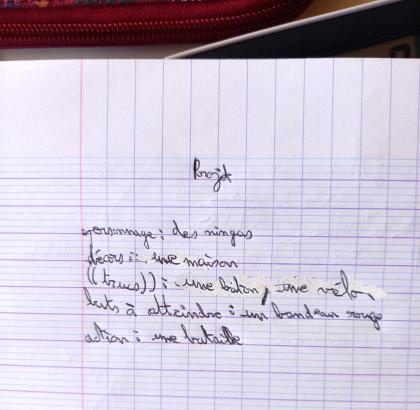 Projet
personnage : des ningas
décors : une maison
((trucs)) : une bâton, une vélo
buts à atteindre : un bandeau rouge
action : une bataille